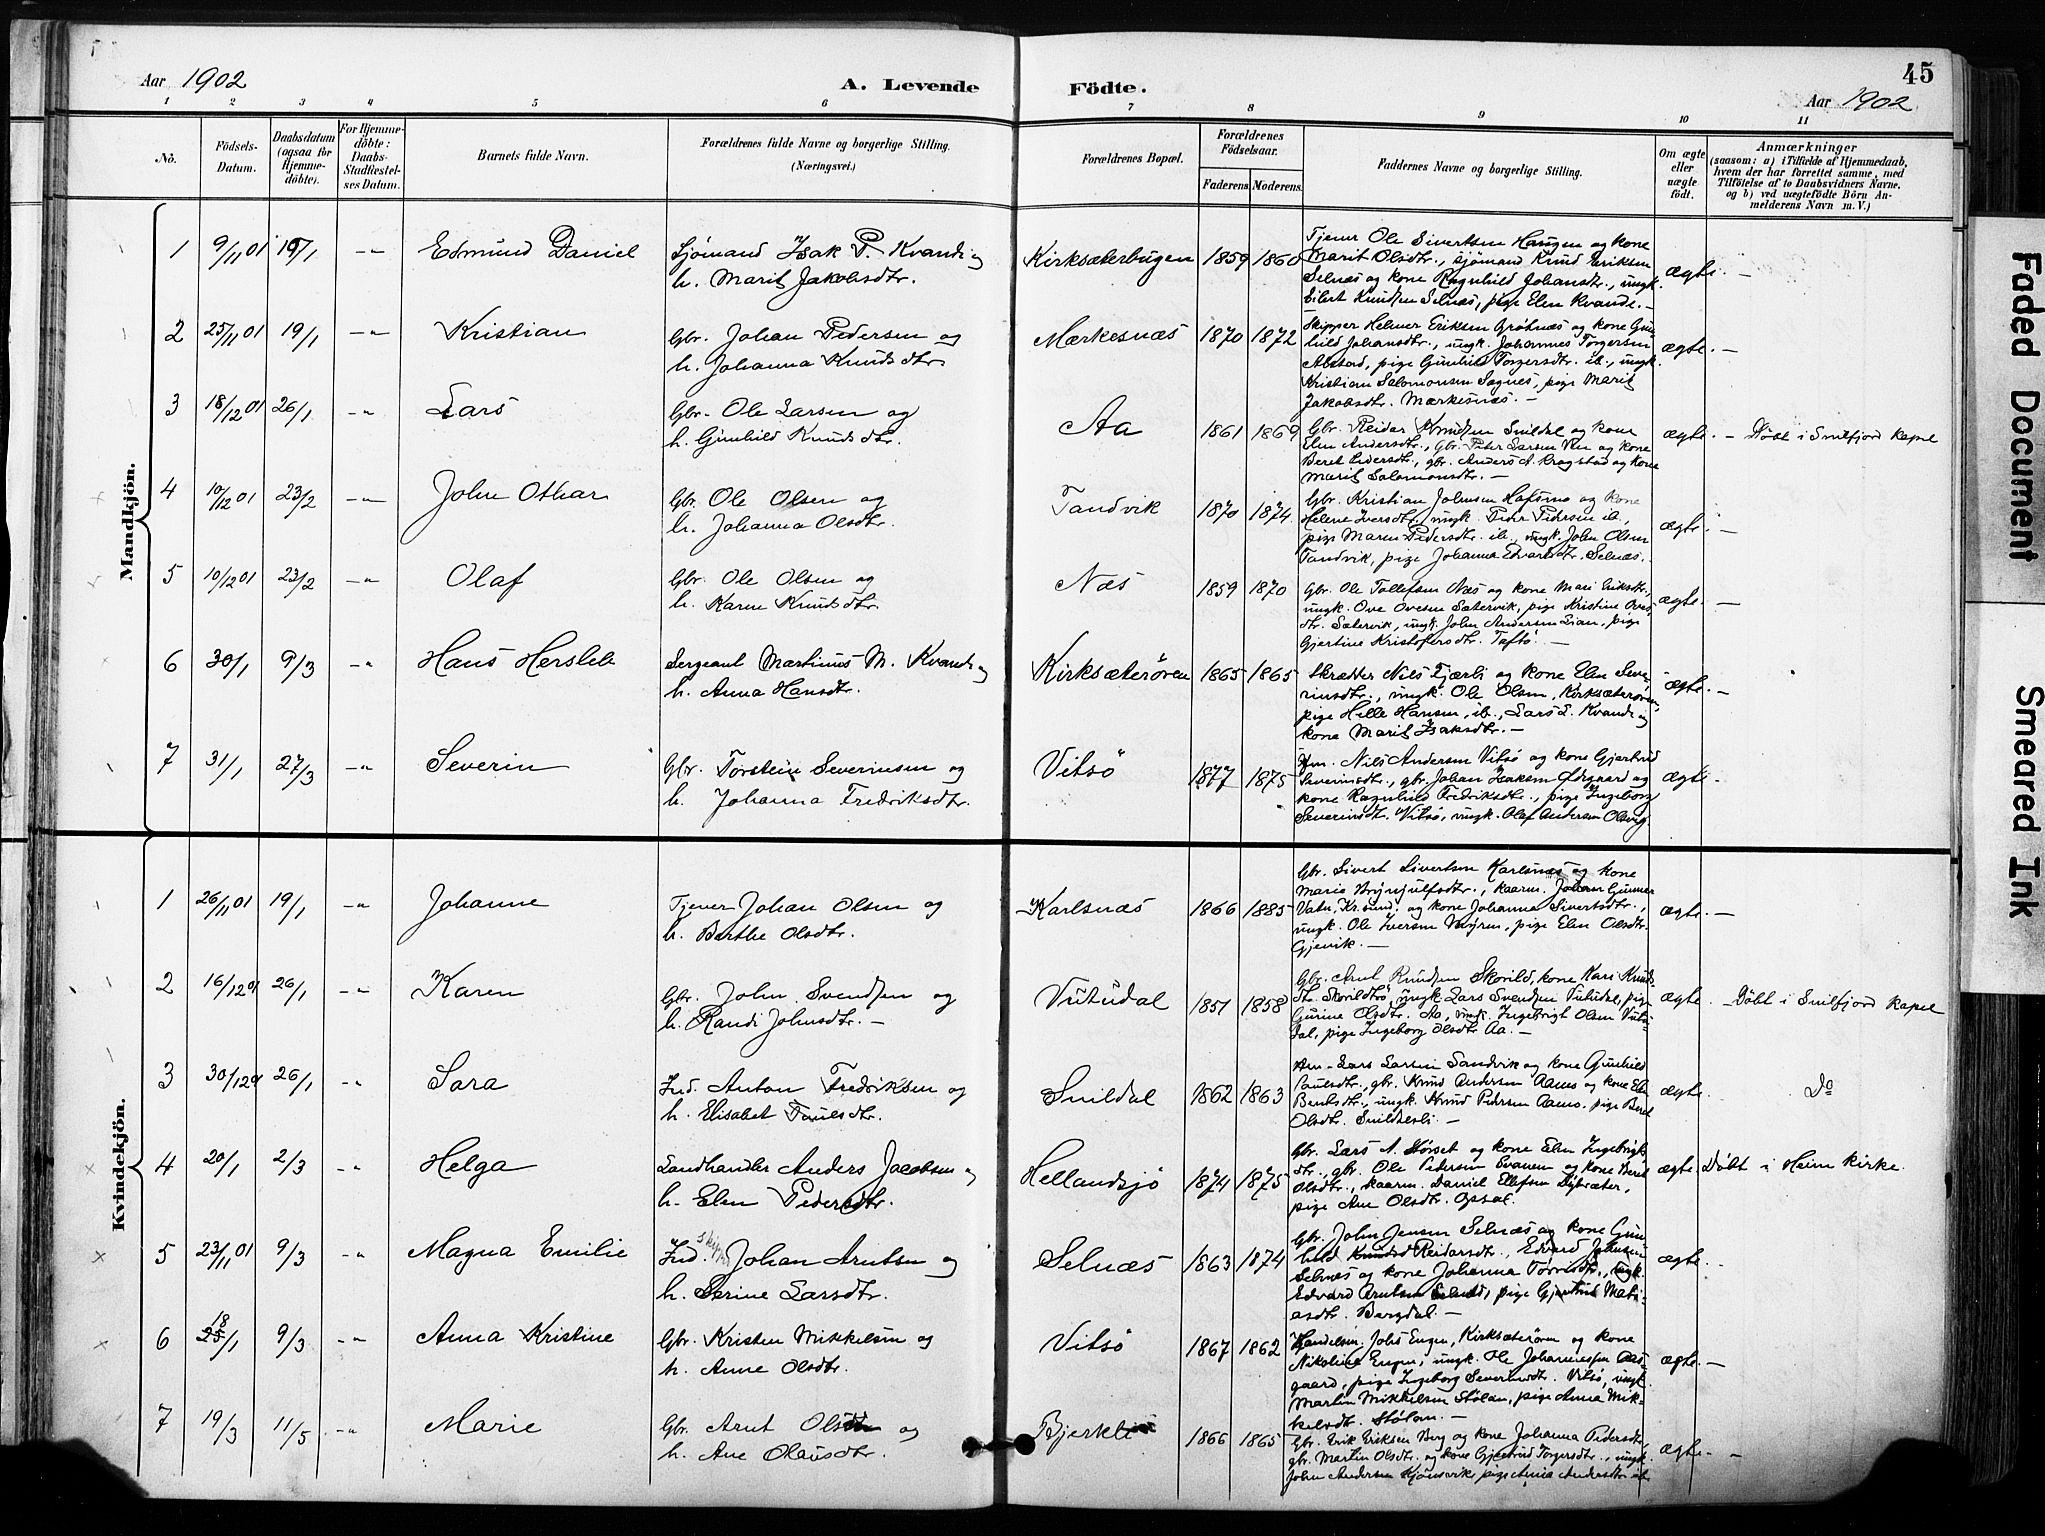 Aar 1902
A. Levende Födte.
45
Aar 1902
1 2 3 4 5 6 7 8 9 10 11
No.
Födsels-Datum.
Daabsdatum (ogsaa for Hjemme-döbte).
For Hjemme-döbte: Daabs-Stadfæstel-ses Datum.
Barnets fulde Navn.
Forældrenes fulde Navne og borgerlige Stilling.
(Næringsvei.)
Forældrenes Bopæl.
Forældrenes Födselsaar.
Faderens. Moderens.
Faddernes Navne og borgerlige Stilling.
Om ægte eller uægte födt.
Anmærkninger
(saasom: a) i Tilfælde af Hjemmedaab,
hvem der har forrettet samme, med
Tilföielse af to Daabsvidners Navne,
og b) ved uægtefödte Börn An-
melderens Navn m. V.)
Mandkjön.
1 9/11 01 -"- Edmund Daniel Sjömand Isak P. Kvande og
h. Marit Jakobsdtr. Kirksæterbugen 1859 1860 ægte. —
Tjener Ole Sivertsen Haugen og kone
Marit Olsdtr., sjömand Knud Eriksen
Selnæs og kone Ragnhild Johansdtr., ungk.
Eilert Knudsen Selnæs, pige Elen Kvande. —
2 25/11 01 19/1 -"- Kristian Gbr. Johan Pedersen og
h. Johanna Knudsdtr. Mærkesnæs 1870 1872 ægte. —
Skipper Helmer Eriksen Grøtnæs og kone Gun-
hild Johansdtr., ungk. Johannes Torgersen
pige Gunhild Torgersdtr. ib., ungk.
Kristian Salomonsen Sagnes, pige Marit
Jakobsdtr. Mærkesnæs. —
3 18/12 01 26/1 -"- Lars Gbr. Ole Larsen og
h. Gunhild Knudsdtr. Aa 1861 1869 ægte. — Döbt i Snilfjord kapel
Gbr. Reidar Knudsen Snildal og kone
Elen Andersdtr., gbr. Peter Larsen Ven og kone
Beret Iversdtr., gbr. Anders A. Krogstad og kone
Marit Salomonsdtr. —
4 10/12 01 23/2 -"- John Othar Gbr. Ole Olsen og
h. Johanna Olsdtr. Tandvik 1870 1874 ægte. —
Gbr. Kristian Johnsen Hafsmo og kone
Helene Iversdtr., ungk. Peder Pedersen ib.,
pige Maren Pedersdtr. ib., ungk. John Olsen
Tandvik, pige Johanna Edvardsdtr. Selnæs.
5 10/12 01 23/2 -"- Olaf Gbr. Ole Olsen og
h. Karen Knudsdtr. Næs 1859 1870 ægte. —
Gbr. Ole Tollefsen Næs og kone Mari Eriksdtr.,
ungk. Ove Ovesen Sætervik, pige Kristine Oves-
dtr. Sætervik, ungk. John Andersen Lian, pige
Gjertine Kristofersdtr. Taftö. —
6 30/1 9/3 -"- Hans Hersleb Sergeant Martinus M. Kvande og
h. Anna Hansdtr. Kirksæterøren 1865 1865 ægte. —
Skrædder Nils Fjærli og kone Elen Seve-
rinsdtr., ungk. Ole Olsen, Kirksæterøren,
pige Hille Hansen, ib., Lars L. Kvande og
kone Marit Isaksdtr. —
7 31/1 27/3 -"- Severin Gbr. Torstein Severinsen og
h. Johanna Fredriksdtr. Vitsö 1877 1875 ægte. —
Hm. Nils Andersen Vitsö og kone Gjertrud
Severinsdtr., gbr. Johan Isaksen Ødegaard og
kone Ragnhild Fredriksdtr., pige Ingeborg
Severinsdt. Vitsö, ungk. Olaf Andersen
Kvindekjön.
1 26/11 01 19/1 -"- Johanne Tjener Johan Olsen og
h. Berthe Olsdtr. Karlsnæs 1866 1885 ægte. —
Gbr. Sivert Sivertsen Karlsnæs og kone
Marie Brynjulfsdtr., kaarm. Johan Gunner
Vatn, Kr.sund. og kone Johanna Sivertsdtr.,
ungk. Ole Iversen Myren, pige Elen Olsdtr.
Gjevik. —
2 16/12 01 26/1 -"- Karen Gbr. John Svendsen og
h. Randi Johnsdtr. — Vutudal 1851 1858 ægte. — Döbt i Snilfjord kapel
Gbr. Arnt Knudsen Skorild, kone Kari Knuds-
dtr. Skorildtrö, ungk. Lars Svendsen Vutudal, pige
Gurine Olsdtr. Aa, ungk. Ingebrigt Olsen Vutu-
dal, pige Ingeborg Olsdtr Aa. —
3 30/12 01 26/1 -"- Sara Ind. Anton Fredriksen og
h. Elisabet Paulsdtr. Snildal 1862 1863 ægte. Do
Hm. Lars Larsen Sandvik og kone Gunhild
Paulsdtr., gbr. Knud Andersen Aarnes og kone
ungk. Knud Pedersen Aarnes, pige Beret
Olsdtr. Snildalsli. —
4 20/1 2/3 -"- Helga Landhandler Anders Jacobsen og
h. Elen Pedersdtr. Hellandsjö 1874 1875 ægte. Döbt i Heim kirke.
Gbr. Lars A. Störset og kone Elen Ingebrigts-
dtr., gbr. Ole Pedersen Svanem og kone Beret
Olsdtr., kaarm. Daniel Ellefsen
pige Ane Olsdtr. Opsal.
5 23/11 01 9/3 -"- Magna Emilie Ind. skipper Johan Arntsen og
h. Serine Larsdtr. Selnæs 1863 1874 ægte. —
Gbr. John Jensen Selnæs og kone Gun-
hild Reidarsdtr., Edvard Johnsen
Selnæs og kone Johanna ungk.
Edvard Arntsen Selnæs, pige Gjertrud Mati-
asdtr. Bergdal. —
6 18/1 9/3 -"- Anna Kristine Gbr. Kristen Mikkelsen og
h. Anne Olsdtr. Vitsö 1867 1862 ægte. —
Handelsm. Johs Engen, Kirksæterören og kone
Nikoline Engen, ungk. Ole Johannessen Aas-
gaard, pige Ingeborg Severinsdtr. Vitsö, ungk.
Martin Mikkelsen Stölan, pige Anna Mik-
kelsdtr. Stölan. —
7 19/3 11/5 -"- Marie Gbr. Arnt Olsen og
h. Ane Olausdtr. Bjerkli 1866 1865 ægte. —
Gbr. Erik Eriksen Berg og kone Johanna Pedersdtr.,
gbr. Martin Olsdtr. og kone Gjertrud Torgersdtr., ungk.
John Andersen Kjönsvik, pige Anna Andersdtr ib.
Faded Document
Smeared Ink